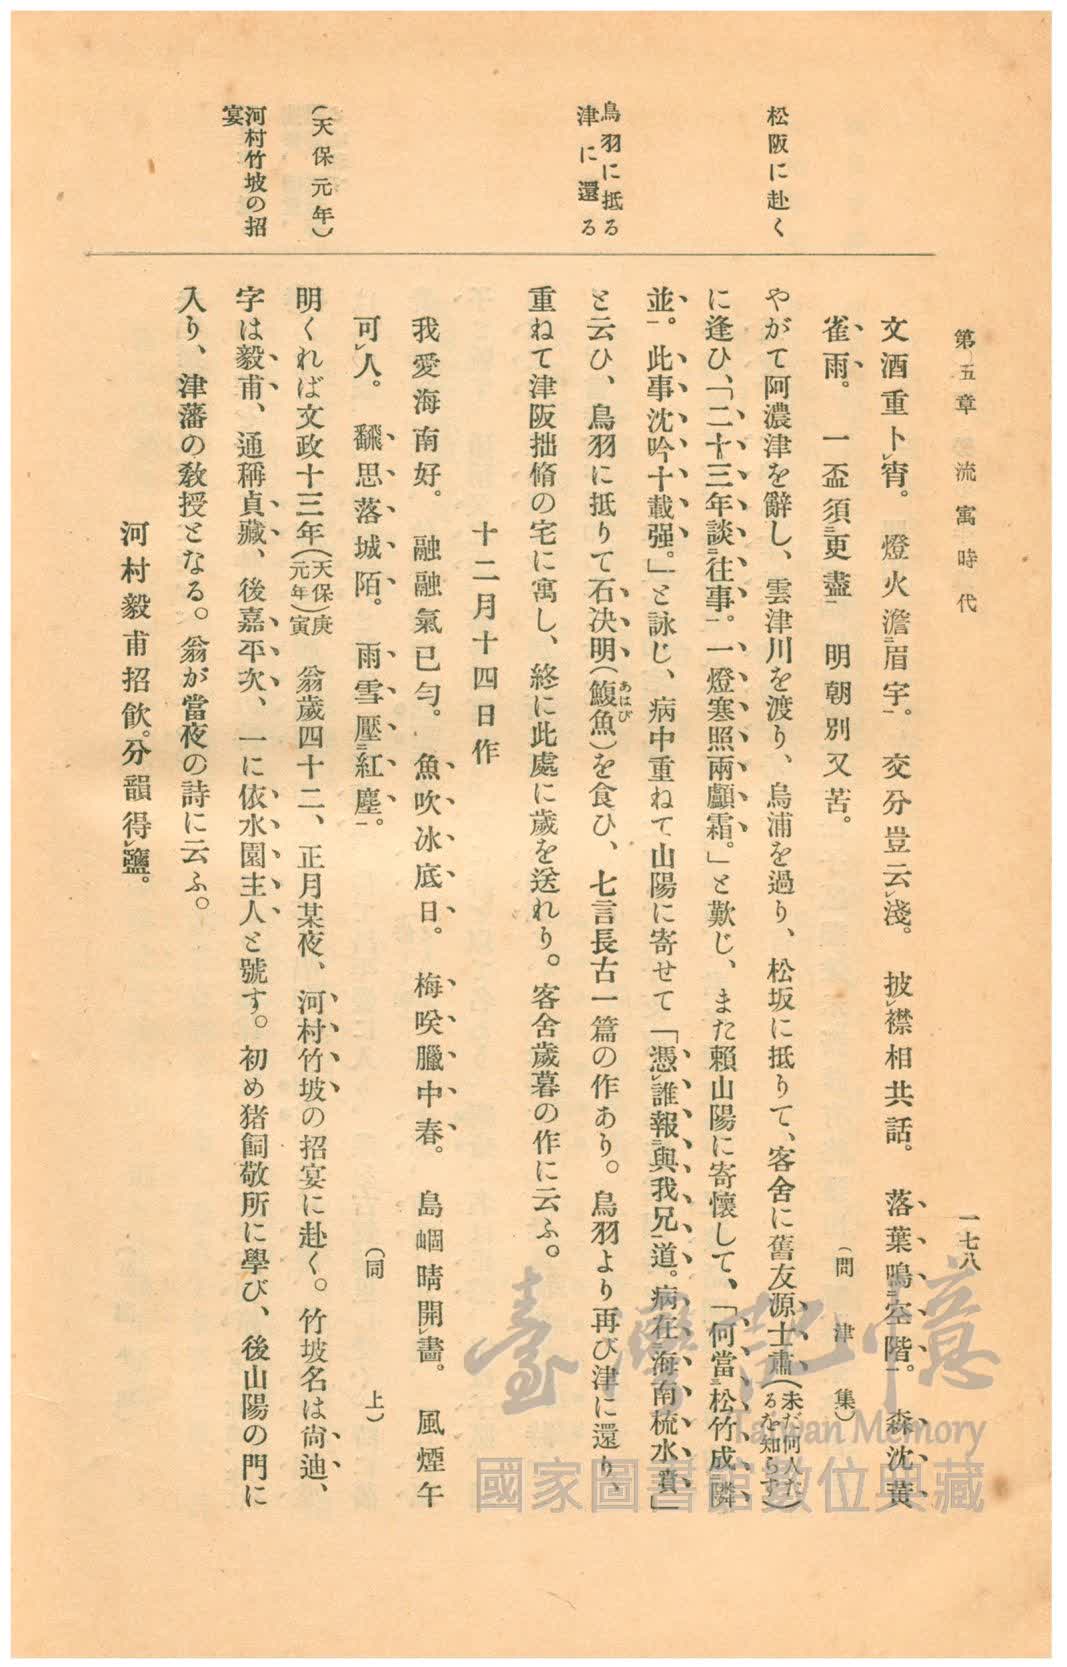 第五章　流寓時代
一七八
文酒重卜レ宵。　燈火澹二眉宇一。　交分豈云レ淺。　披レ襟相共話。　落葉鳴二空階一。　森沈黄
雀雨。　一盃須二更盡一　明朝別又苦。
（問津集）
松阪に赴く
やがて阿濃津を辭し、雲津川を渡り、烏浦を過り、松坂に抵りて、客舍に舊友源士肅（未だ何人たるを知らず）
に逢ひ、「二十三年談二往事一。一燈寒照兩顱霜。」と歎じ、また賴山陽に寄懷して、「何當二松竹成レ隣
並一。此事沈吟十載强。」と詠じ、病中重ねて山陽に寄せて「憑レ誰報二與我兄一道。病在二海南梳水濱一」
鳥羽に抵る
津に還る
と云ひ、鳥羽に抵りて石決明（鰒魚あはび）を食ひ、七言長古一篇の作あり。鳥羽より再び津に還り、
重ねて津阪拙脩の宅に寓し、終に此處に歲を送れり。客舍歲暮の作に云ふ。
十二月十四日作
我愛海南好。　融融氣已匀。　魚吹氷底日。　梅咲臘中春。　島嵎晴開レ畵。　風煙午
可レ人。　飜思落城陌。　雨雪壓二紅塵一。
（同上）
（天保元年）
明くれば文政十三年（天保元年）庚寅　翁歲四十二、正月某夜、河村竹坡の招宴に赴く。竹坡名は尙迪、
河村竹坡の招
宴
字は毅甫、通稱貞藏、後嘉平次、一に依水園主人と號す。初め猪飼敬所に學び、後山陽の門に
入り、津藩の敎授となる。翁が當夜の詩に云ふ。
河村毅甫招飮。分韻得レ鹽。
臺灣記憶
Taiwan Memory
國家圖書館數位典藏